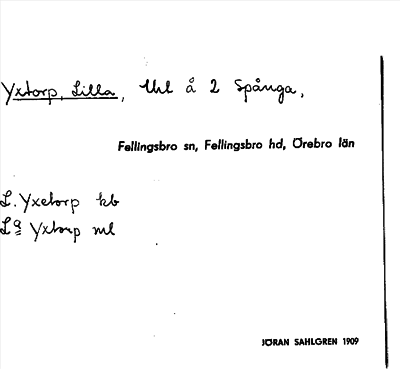 Yxtorp, Lilla, Uhl å 2 Spånga,
Fellingsbro sn, Fellingsbro hd, Örebro län
L. Yxetorp kb
La Yxtorp ml
JÖRAN SAHLGREN 1909